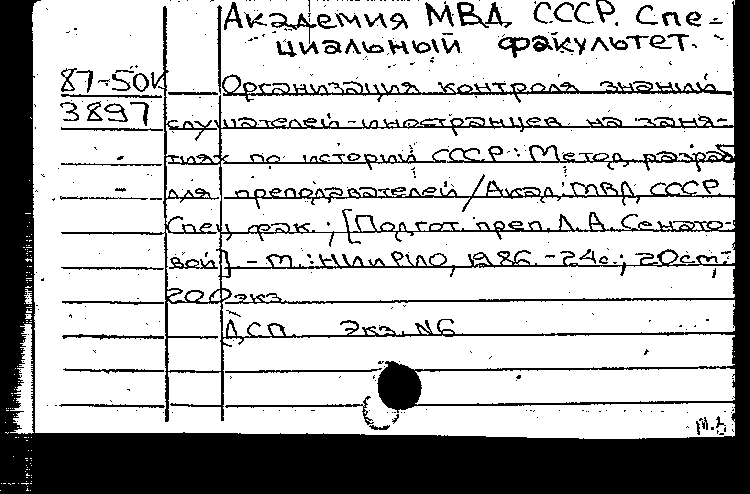 Академия МВД СССР. Спе-
циальный факультет.
87-50к Организация контроля знаний
3897 слушателей-иностранцев на заня-
тиях по истории СССР: Метод. разраб
для преподавателей / Акад. МВД СССР
Спец. фак.; [Подгот. преп. Л. А. Сенато-
вой] - М.: НИиРИО, 1986. - 24с.; 20см;
200экз.
ДСП. Экз. N6